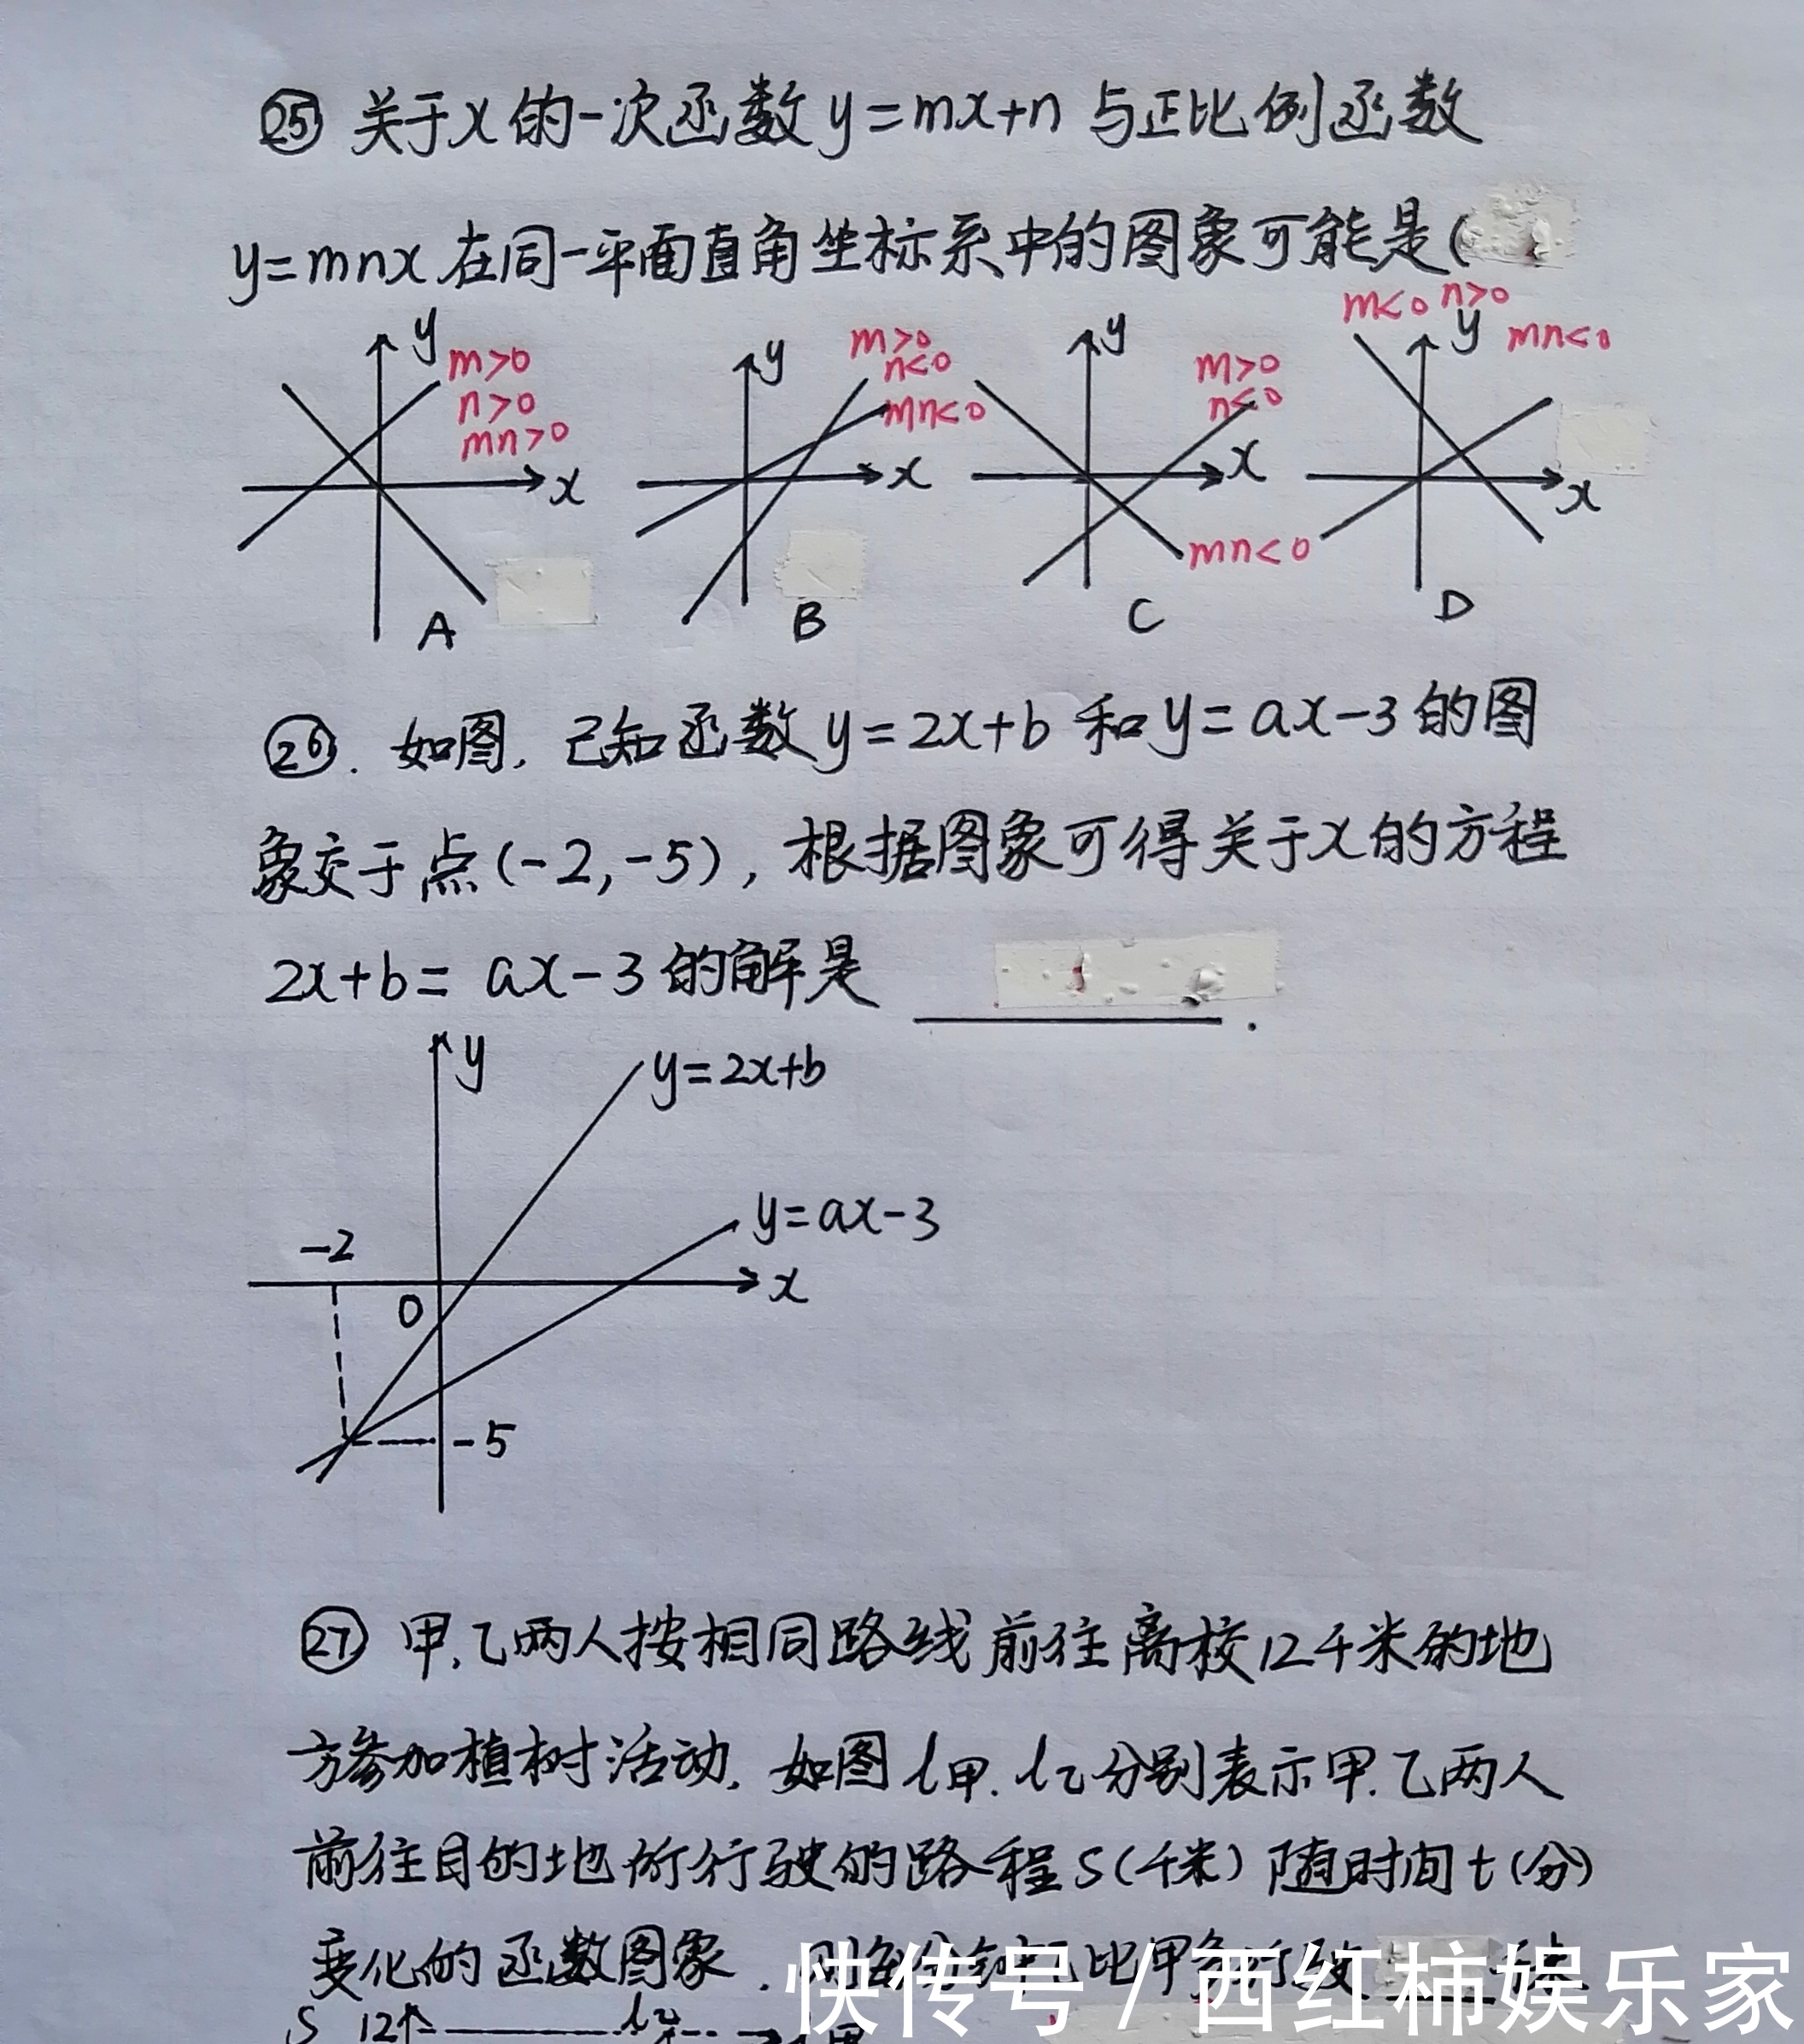 ㉕ 关于x的一次函数y=mx+n与正比例函数
y=mnx在同一平面直角坐标系中的图象可能是(
y m>0 n>0 mn>0 x A
y m>0 n<0 mn<0 x B
y m>0 n<0 x mn<0 C
m<0 n>0 y mn<0 x D
㉖. 如图, 已知函数y=2x+b和y=ax-3的图
象交于点(-2,-5), 根据图象可得关于x的方程
2x+b=ax-3的解是 ______.
y y=2x+b
y=ax-3
-2
x
0
-5
㉗ 甲.乙两人按相同路线前往离校12千米的地
方参加植树活动. 如图l甲.l乙分别表示甲.乙两人
前往目的地所行驶的路程S(千米)随时间t(分)
变化的函数图象.
S 12 l乙 甲
快传号/西红柿娱乐家